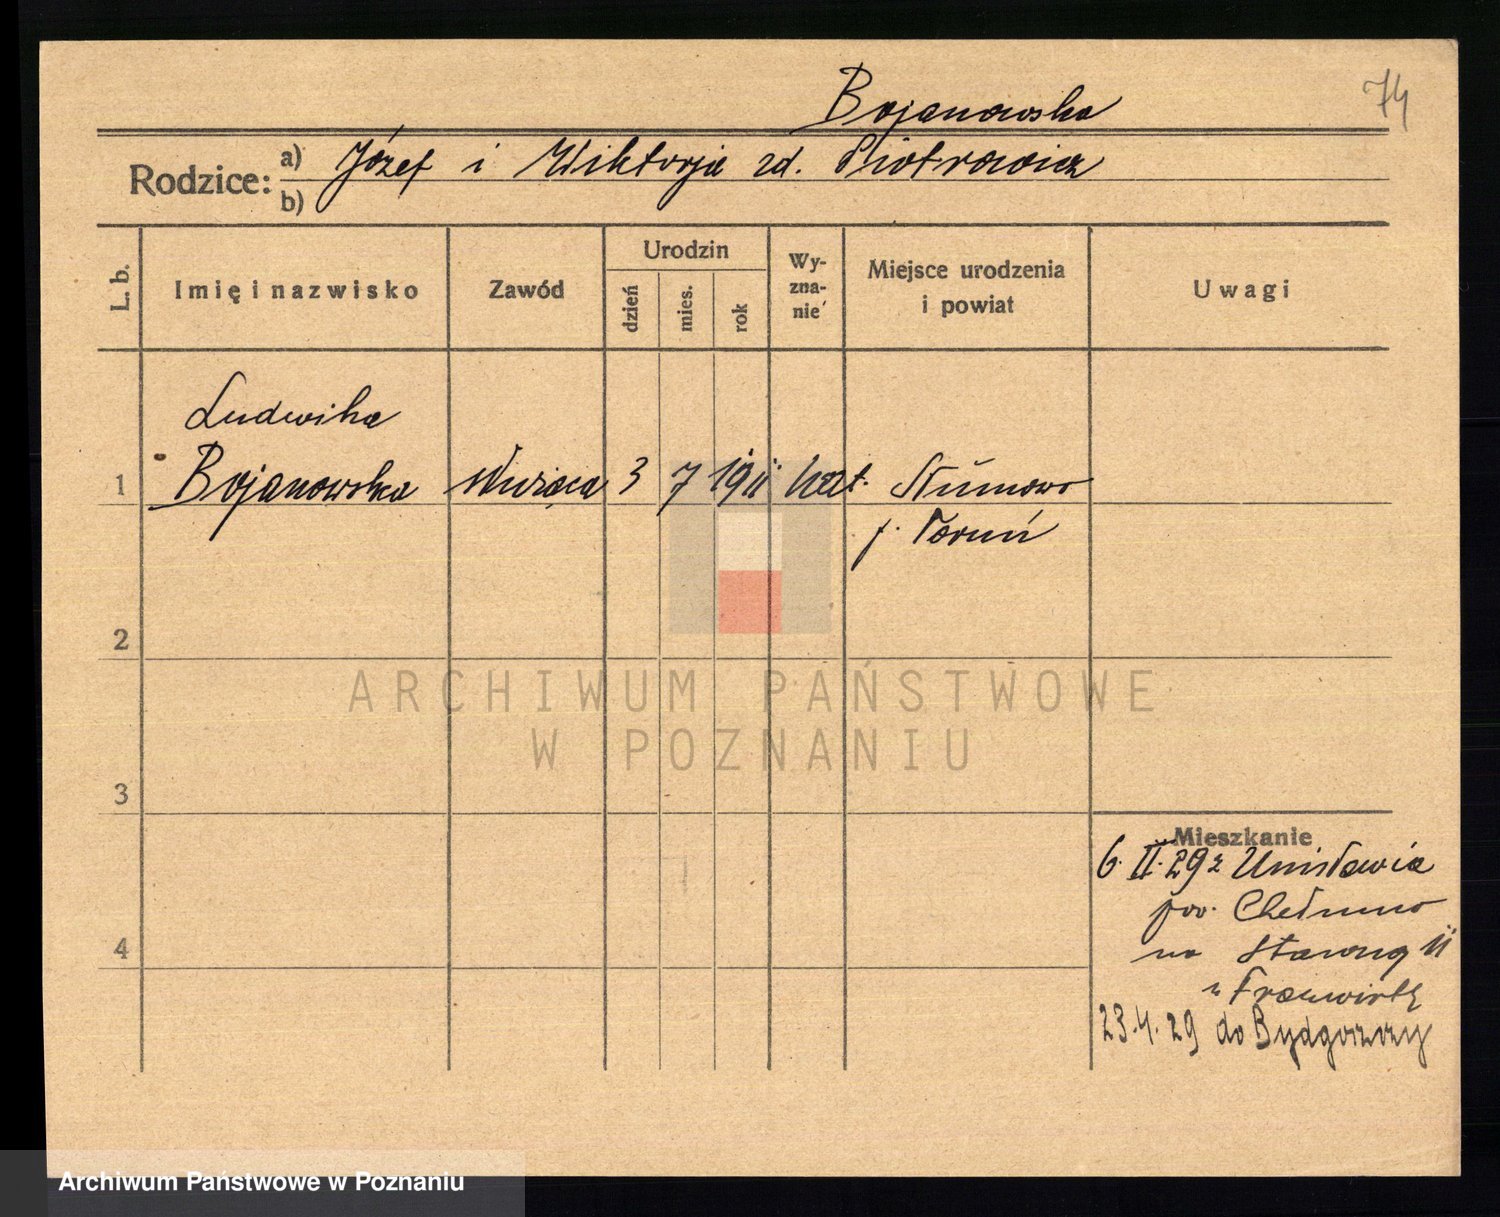 74
Bojanowska
Rodzice: a) Józef i Wiktorja zd. Piotrowicz
b)
L. b.
Imię i nazwisko
Zawód
Urodzin
dzień
mies.
rok
Wy-
zna-
nie
Miejsce urodzenia
i powiat
Uwagi
Ludwika
1 Bojanowska służąca 3 7 1911 kat.
p. Toruń
2
3
4
Mieszkanie
6. II. 29 z Unisławia
pow. Chełmno
na 11
u
23. 4. 29 do Bydgoszczy
ARCHIWUM PAŃSTWOWE
W POZNANIU
Archiwum Państwowe w Poznaniu